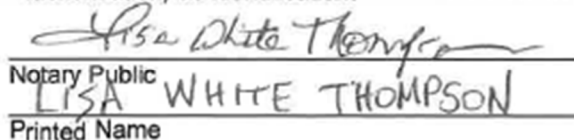 Lisa White Thompson
Notary Public
LISA WHITE THOMPSON
Printed Name